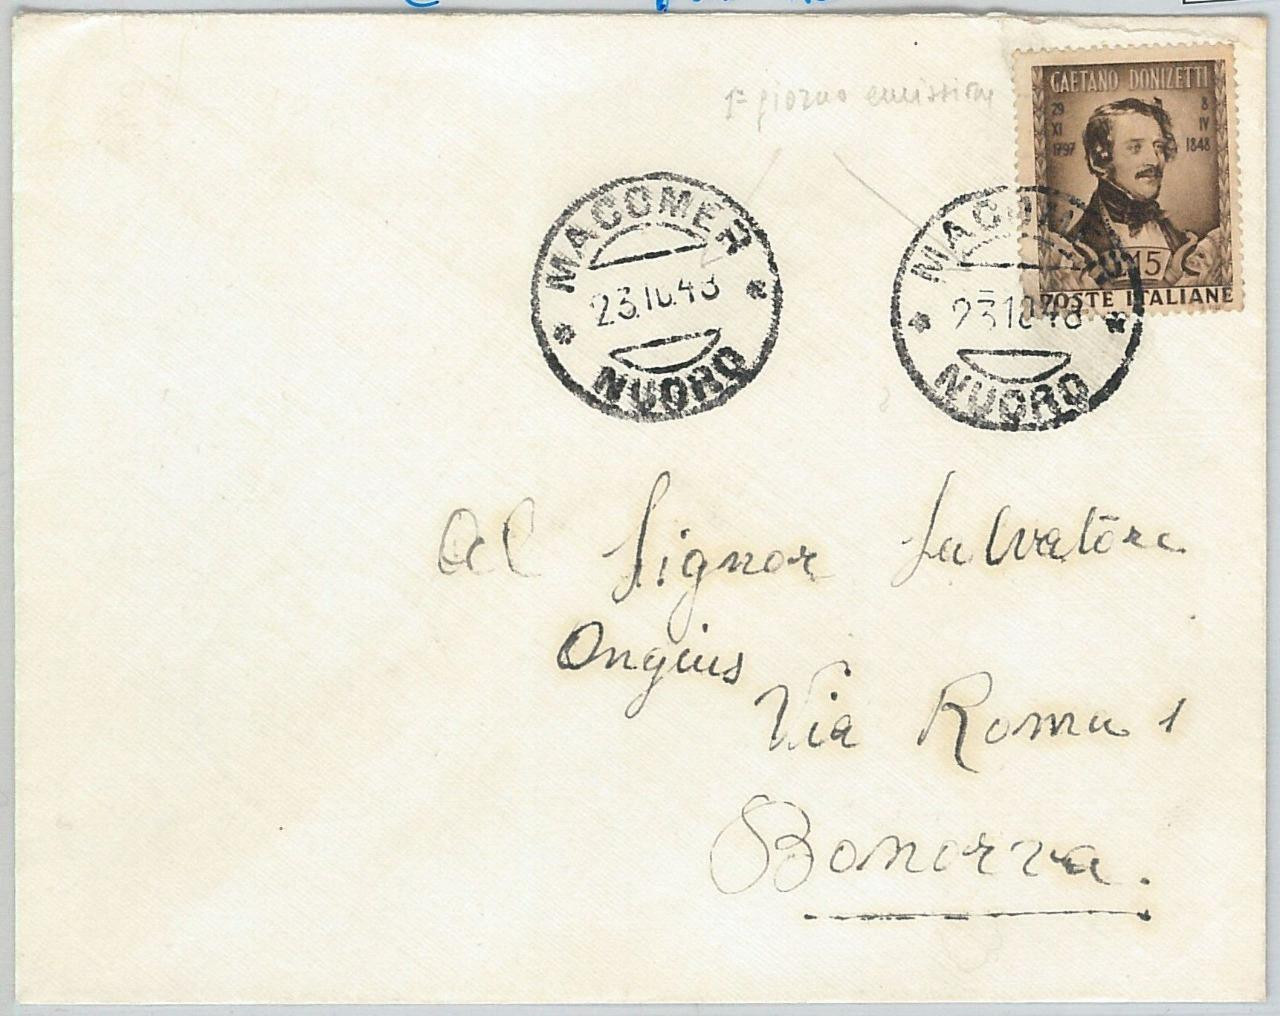 1° giorno emissione
GAETANO DONIZETTI
29 XI 1797
8 IV 1848
15
POSTE ITALIANE
MACOMER
23.10.48
NUORO
MACOMER
23.10.48
NUORO
Al Signor Salvatore
Ongius
Via Roma 1
Bonorva.